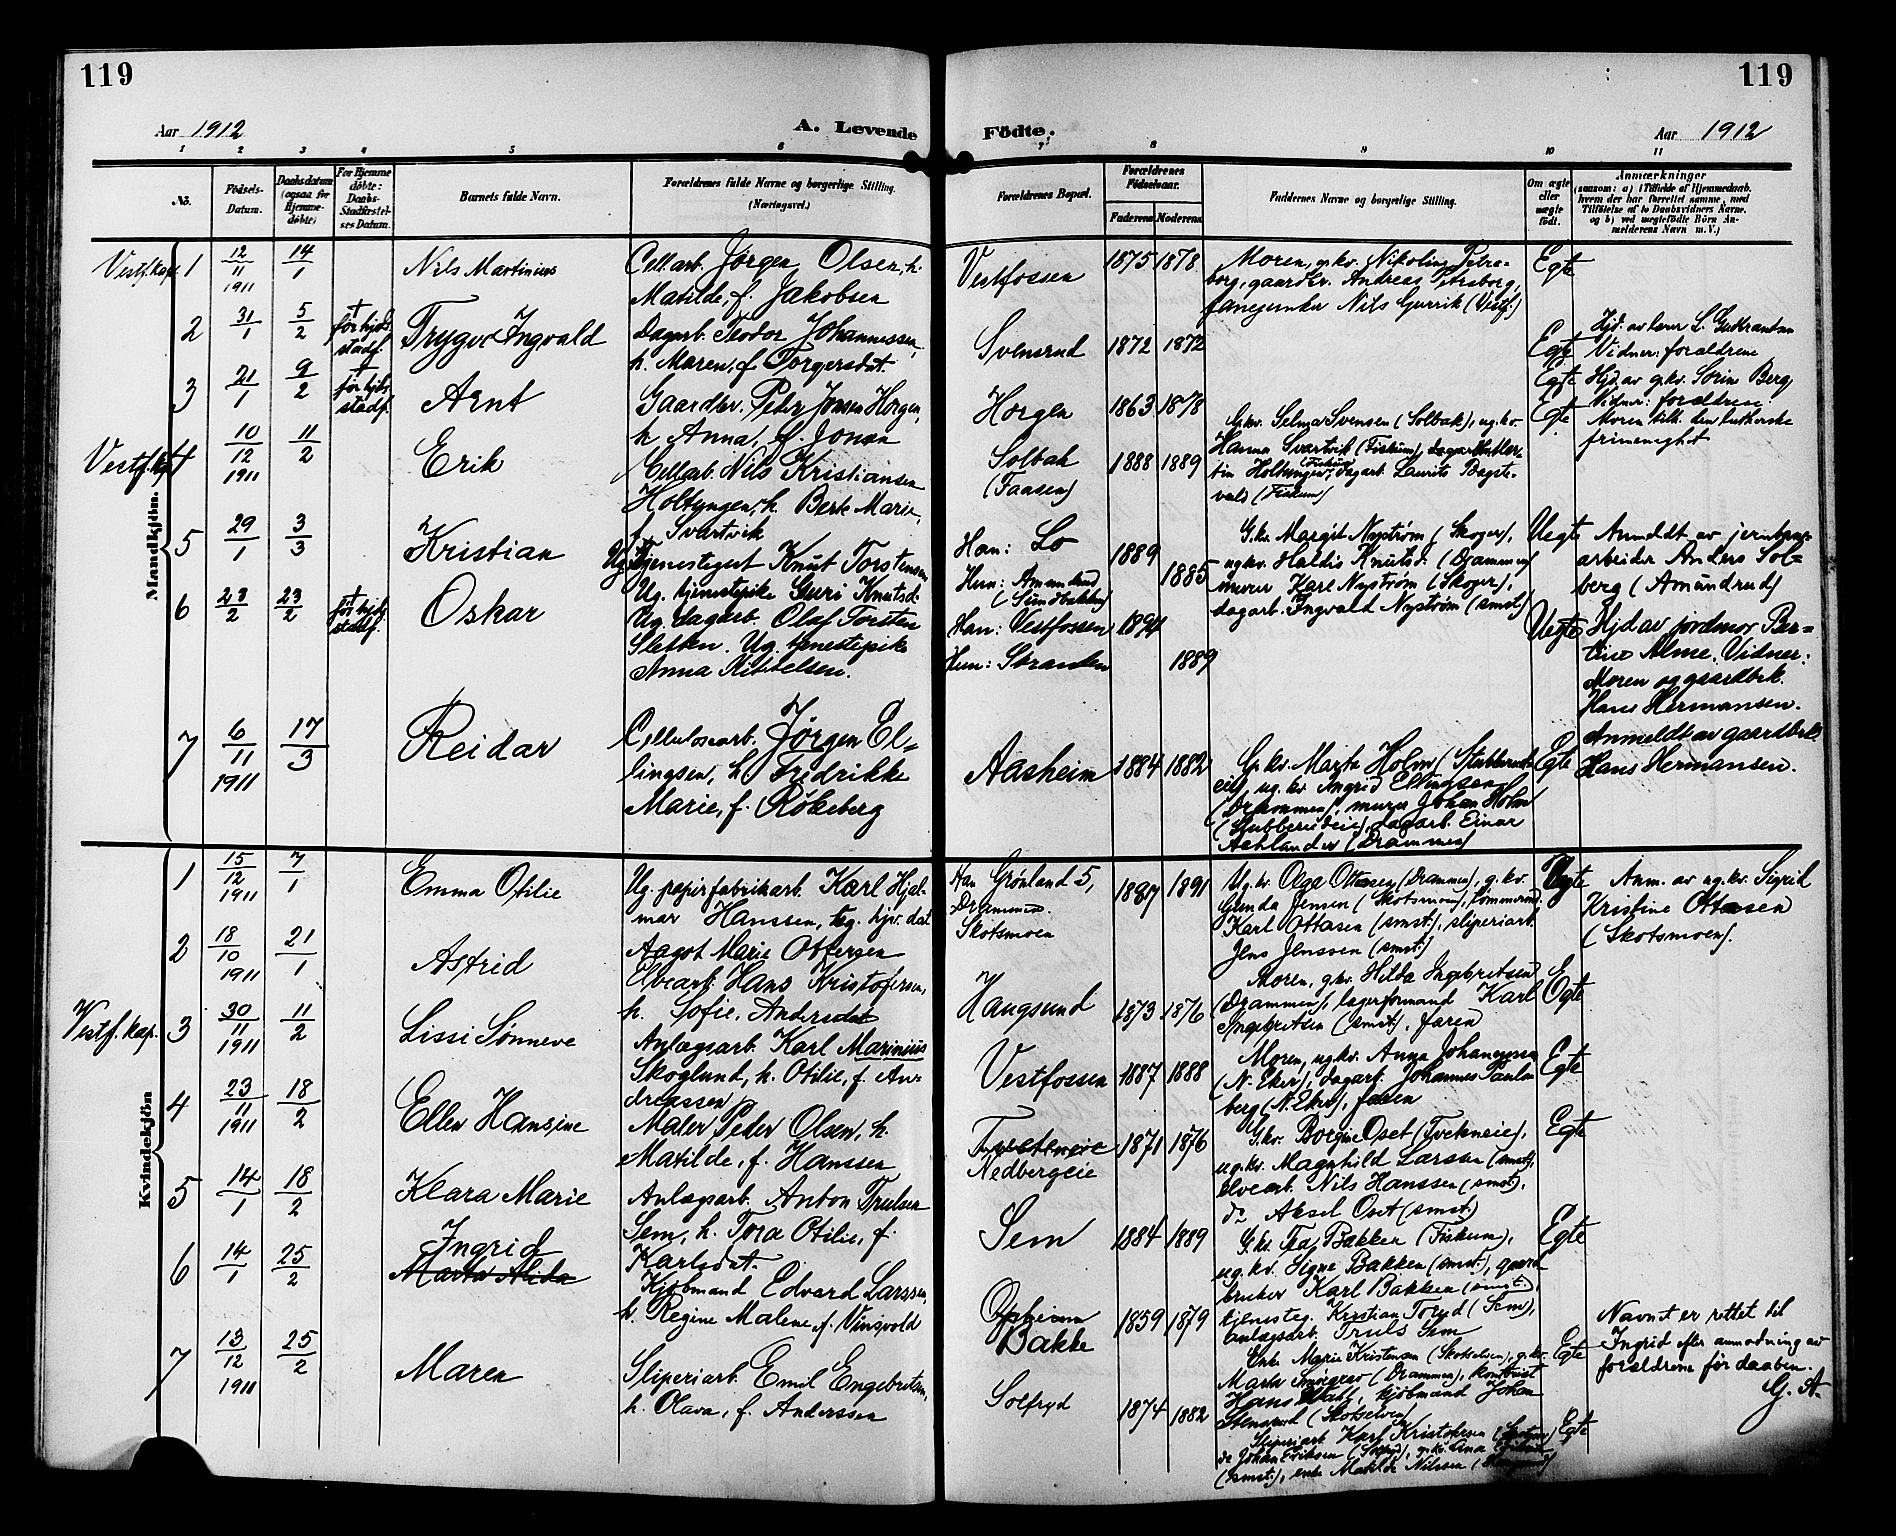 119
119
Aar 1912
A. Levende
Födte.
Aar 1912
1 2 3 4 5 6 7 8 9 10 11
No.
Födsels-Datum.
Daabsdatum (ogsaa for Hjemmedöbte)
For Hjemmedöbte: Daabs-Stadfæstelses Datum.
Barnets fulde Navn.
Forældrenes fulde Navne og borgerlige Stilling. (Næringsvei.)
Forældrenes Bopæl.
Forældrenes Födselsaar.
Faderens Moderens
Faddernes Navne og borgerlige Stilling.
Om ægte eller uægte födt.
Anmærkninger
(saasom: a) i Tilfælde af Hjemmedaab, hvem der har forrettet samme, med Tilföielse af to Daabsvidners Navne, og b) ved uægtefödte Börn Anmelderens Navn m. V.)
Mandkjön.
Vestf. kap. 1 12/11 1911 14/1 Nils Martinius
Cell.arb. Jørgen Olsen, h.
Matilde, f. Jakobsen
Vestfossen 1875 1878
Moren, gkv. Nikoline Petersborg, gaardbr. Andreas Petersborg,
Nils Gurrik (Vestf.)
Egte
2 31/1 5/2 † før hjds. stadf. Trygve Ingvald
Dagarb. Teodor Johannessen,
h. Maren, f. Torgersdat.
Svensrud 1872 1872
Egte
Hjd. av lærer L. Gulbransen
Vidner: forældrene
3 21/1 9/2 † før hjds. stadf. Arnt
Gaardbr. Peder Jonsen Horgen,
h. Anna, f. Jonsen
Horgen 1863 1878
Egte
Hjd. av gkv. Sorine Berg,
Vidner: forældrene
Vestf. kap. 4 10/12 1911 11/2 Erik
Cellarb. Nils Kristiansen
Holtungen, h. Berte Marie,
f. Svartvik
Solbak
(Faasen)
1888 1889
Gkv. Selma Svensen (Solbak), ug.kv.
Hanna Svartvik (Fiskum), dagarb. Mar-
tin Holtungen (Fiskum), dagarb. Laurits Bagste-
vold (Fiskum)
Egte
Moren tilh. den lutherske
frimenighet
5 29/1 3/3 Kristian
Ug. tjenestegut Knut Torstensen
Ug. tjenestepike Guri Knutsd.
Han: Lo 1889
Hun: Amundrud 1885
(Sundbakken)
G.kv. Margit Nystrøm (Skoger),
ugkv. Haldis Knutsd. (Drammen)
murer Karl Nystrøm (Skoger),
dagarb. Ingvald Nystrøm (smst.)
Uegte
Anmeldt av
arbeider Anders Sol-
berg (Amundrud)
6 23/2 23/2 † før hjds. stadf. Oskar
Ug. dagarb. Olaf Torsten
Sletten. Ug. tjenestepike
Anna Kittelsen.
Han: Vestfossen 1894
Hun: Stranden 1889
Uegte
Hjd av jordmor Ber-
Alme. Vidner:
Moren og gaardbr.
Hans Hermansen.
Anmeldt av gaardbr.
Hans Hermansen.
7 6/11 1911 17/3 Reidar
Cellulosearb. Jørgen El-
lingsen, h. Fredrikke
Marie, f. Røkeberg
Aasheim 1884 1882
Gkv. Marte Holm (Stubberud-
eie), ug.kv. Ingrid Ellingsen
(Drammen), murer Johan Holm
(Stubberudeie), dagarb. Einar
(Drammen)
Egte
Kvindekjön
1 15/12 1911 7/1 Emma Otilie
Ug. papirfabrikarb. Karl Hjal-
mar Hanssen, ug. hjv. dat
Aagot Marie Ottersen
Han Grønland 5,
Drammen.
Skotsmoen
1887 1891
Ug.kv. Olga Ottosen (Drammen), g.kv.
Gunda Jensen (Skotsmoen), tømmermd.
Karl Ottosen (smst.), sliperiarb.
Jens Jenssen (smst.)
Uegte
Anm. av ug.kv. Sigrid
Kristine Ottosen
(Skotsmoen).
2 18/10 1911 21/1 Astrid
Elvearb. Hans Kristofersen,
h. Sofie, Andersdat
Haugsund 1873 1876
Moren, gkv. Hilda Ingebretsen
(Drammen), lagerformand Karl
Ingebretsen (smst.), faren
Egte
Vestf. kap. 3 30/11 1911 11/2 Lissi Sønneve
Anlægsarb. Karl Marinius
Skoglund, h. Otilie, f. An-
dreassen
Vestfossen 1887 1888
Moren, ugkv. Anna Johannessen
(N. Eker), dagarb. Johannes Paulsberg (N. Eker), faren
Egte
4 23/11 1911 18/2 Ellen Hansine
Maler Peder Olsen, h.
Matilde, f. Hanssen
Nedbergeie
1871 1876
Gkv. Borgine Oset,
ug.kv. Magnhild Larsen (smst.),
elvearb. Nils Hanssen (smst.),
do Aksel Oset (smst.)
Egte
5 14/1 18/2 Klara Marie
Anlægsarb. Anton Trulsen
Sem, h. Tora Otilie, f.
Karlsdat.
Sem 1884 1889
G.kv. Bakken (Fiskum),
ug.kv. Signe Bakken (smst.), gaard-
bruker Karl Bakken (smst.)
tjenesteg. Kristian Toryd (Sem),
anlægsarb. Truls Sem
Egte
6 14/1 25/2 Ingrid
Marta Alida
Kjøbmand Edvard Larssen,
h. Regine Malene, f. Vinsvold
Opheim
Bakke
1859 1879
Enke Marie Kristensen (Skotselven), g.kv.
(Drammen),
kjøbmand Johan
Stensrud (Skotselven)
Egte
Navnet er rettet til
Ingrid efter anmodning av
forældrene før daaben.
G. A.
7 13/12 1911 25/2 Maren
Sliperiarb. Emil Engebretsen,
h. Olava, f. Anderssen
Solfryd 1874 1882
Sliperiarb Karl Kristofersen
do Johan Eriksen (Solfryd), g.kv.
(smst.), enke Matilde Nilssen
Egte